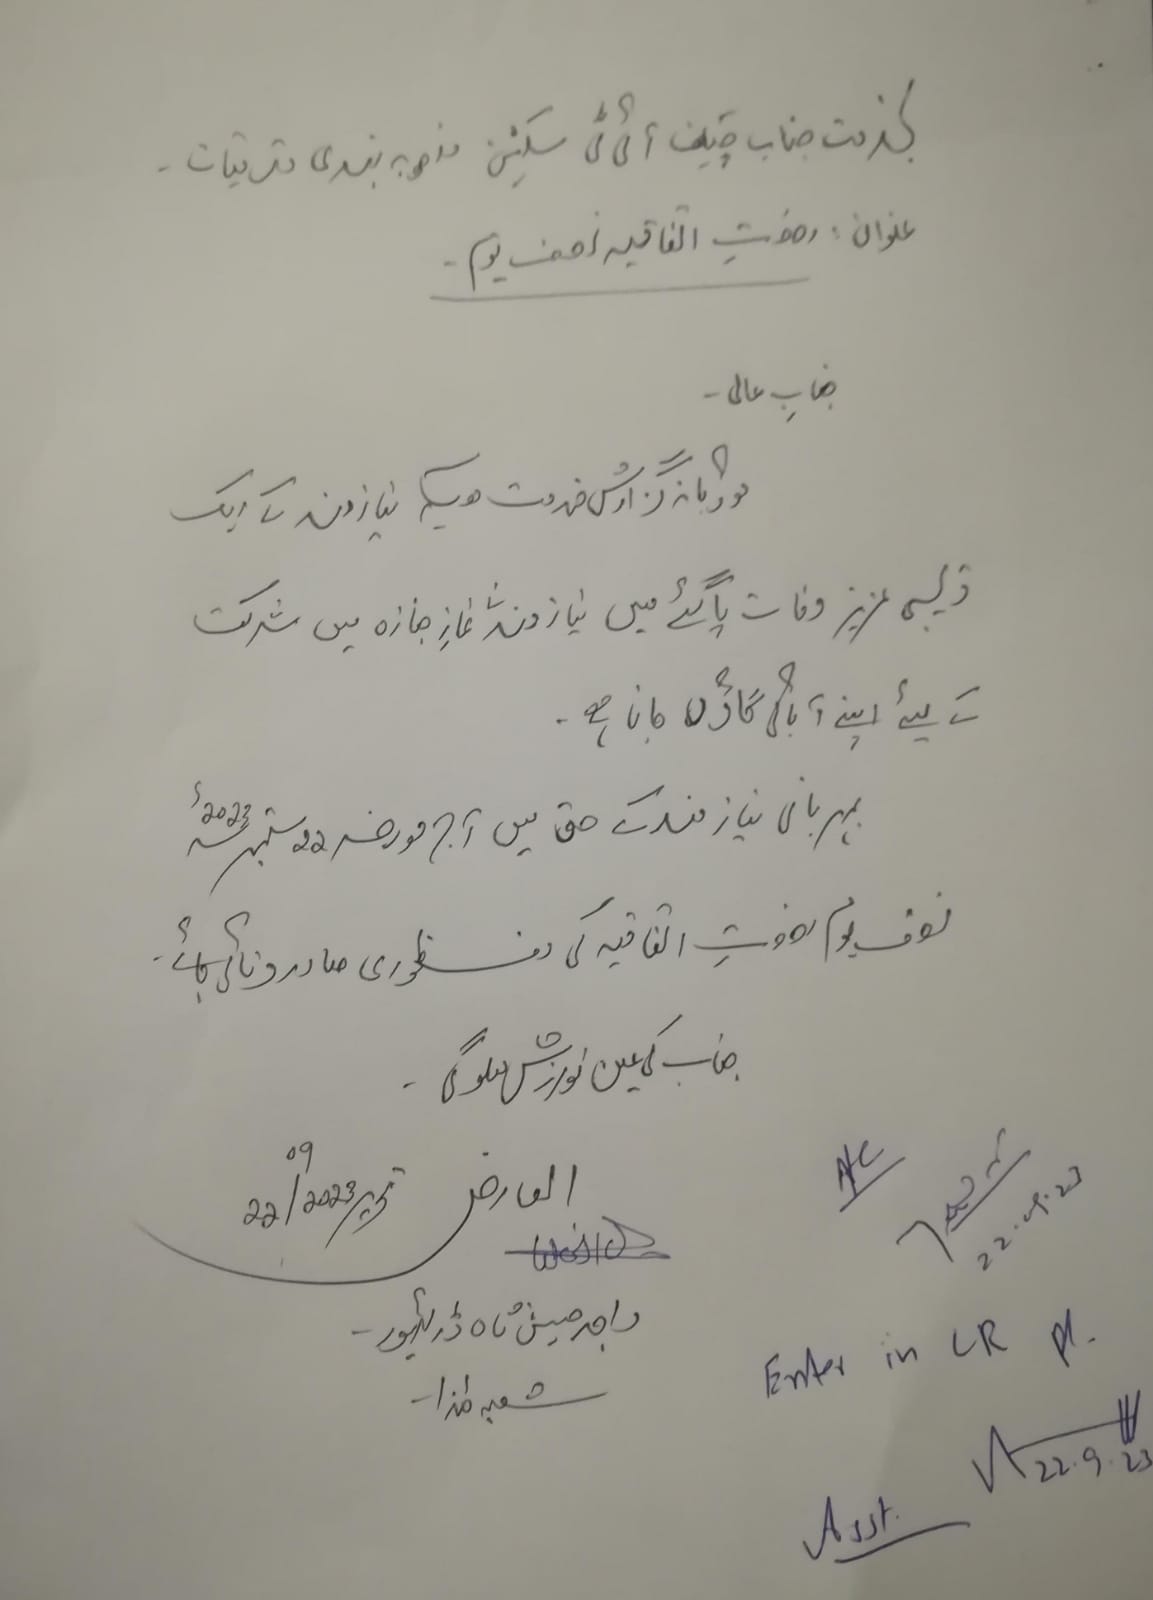 بخدمت جناب چیف آئی ٹی سیکشن منصوبہ بندی و ترقیات ۔
عنوان : رخصتِ اتفاقیہ نصف یوم ۔
جنابِ عالی ۔
مودبانہ گزارش خدمت ہیکہ نیازمند کے ایک
قریبی عزیز وفات پا گئے ہیں نیازمند نے نمازِ جنازہ میں شرکت
کے لیئے اپنے آبائی گاؤں جانا ہے ۔
بمہربانی نیازمند کے حق میں آج مورخہ 22 ستمبر 2023ء
نصف یوم رخصتِ اتفاقیہ کی منظوری صادر فرمائی جائے ۔
جناب کی عین نوازش ہوگی ۔
العارض تحریر 22/09/2023
واجد حسین شاہ ڈرائیور ۔
شعبہ ھذا ۔
22.09.23
Enter in LR pl.
22.9.23
Asst.